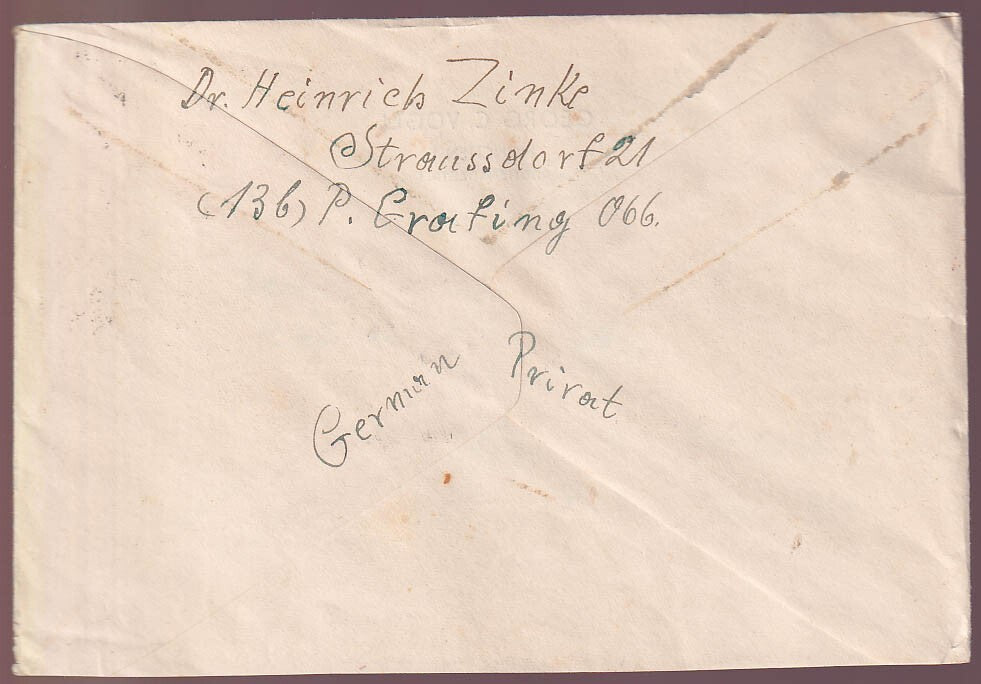 Dr. Heinrich Zinke
Straussdorf 21
(13b) P. Grafing Obb.
German Privat